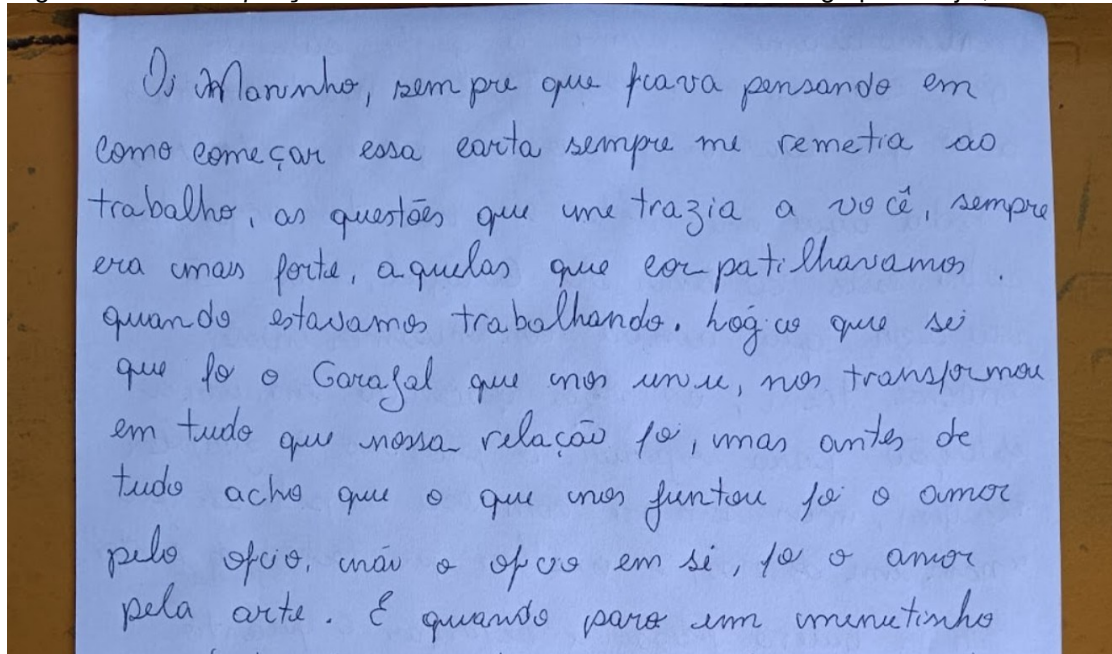 Oi Marinho, sempre que ficava pensando em
como começar essa carta sempre me remetia ao
trabalho, as questões que me trazia a você, sempre
era mais forte, aquelas que compatilhavamos.
quando estavamos trabalhando. Lógico que sei
que foi o Carajal que nos uniu, nos transformou
em tudo que nossa relação foi, mas antes de
tudo acho que o que nos juntou foi o amor
pelo oficio, não o oficio em si, foi o amor
pela arte. E quando paro um minutinho